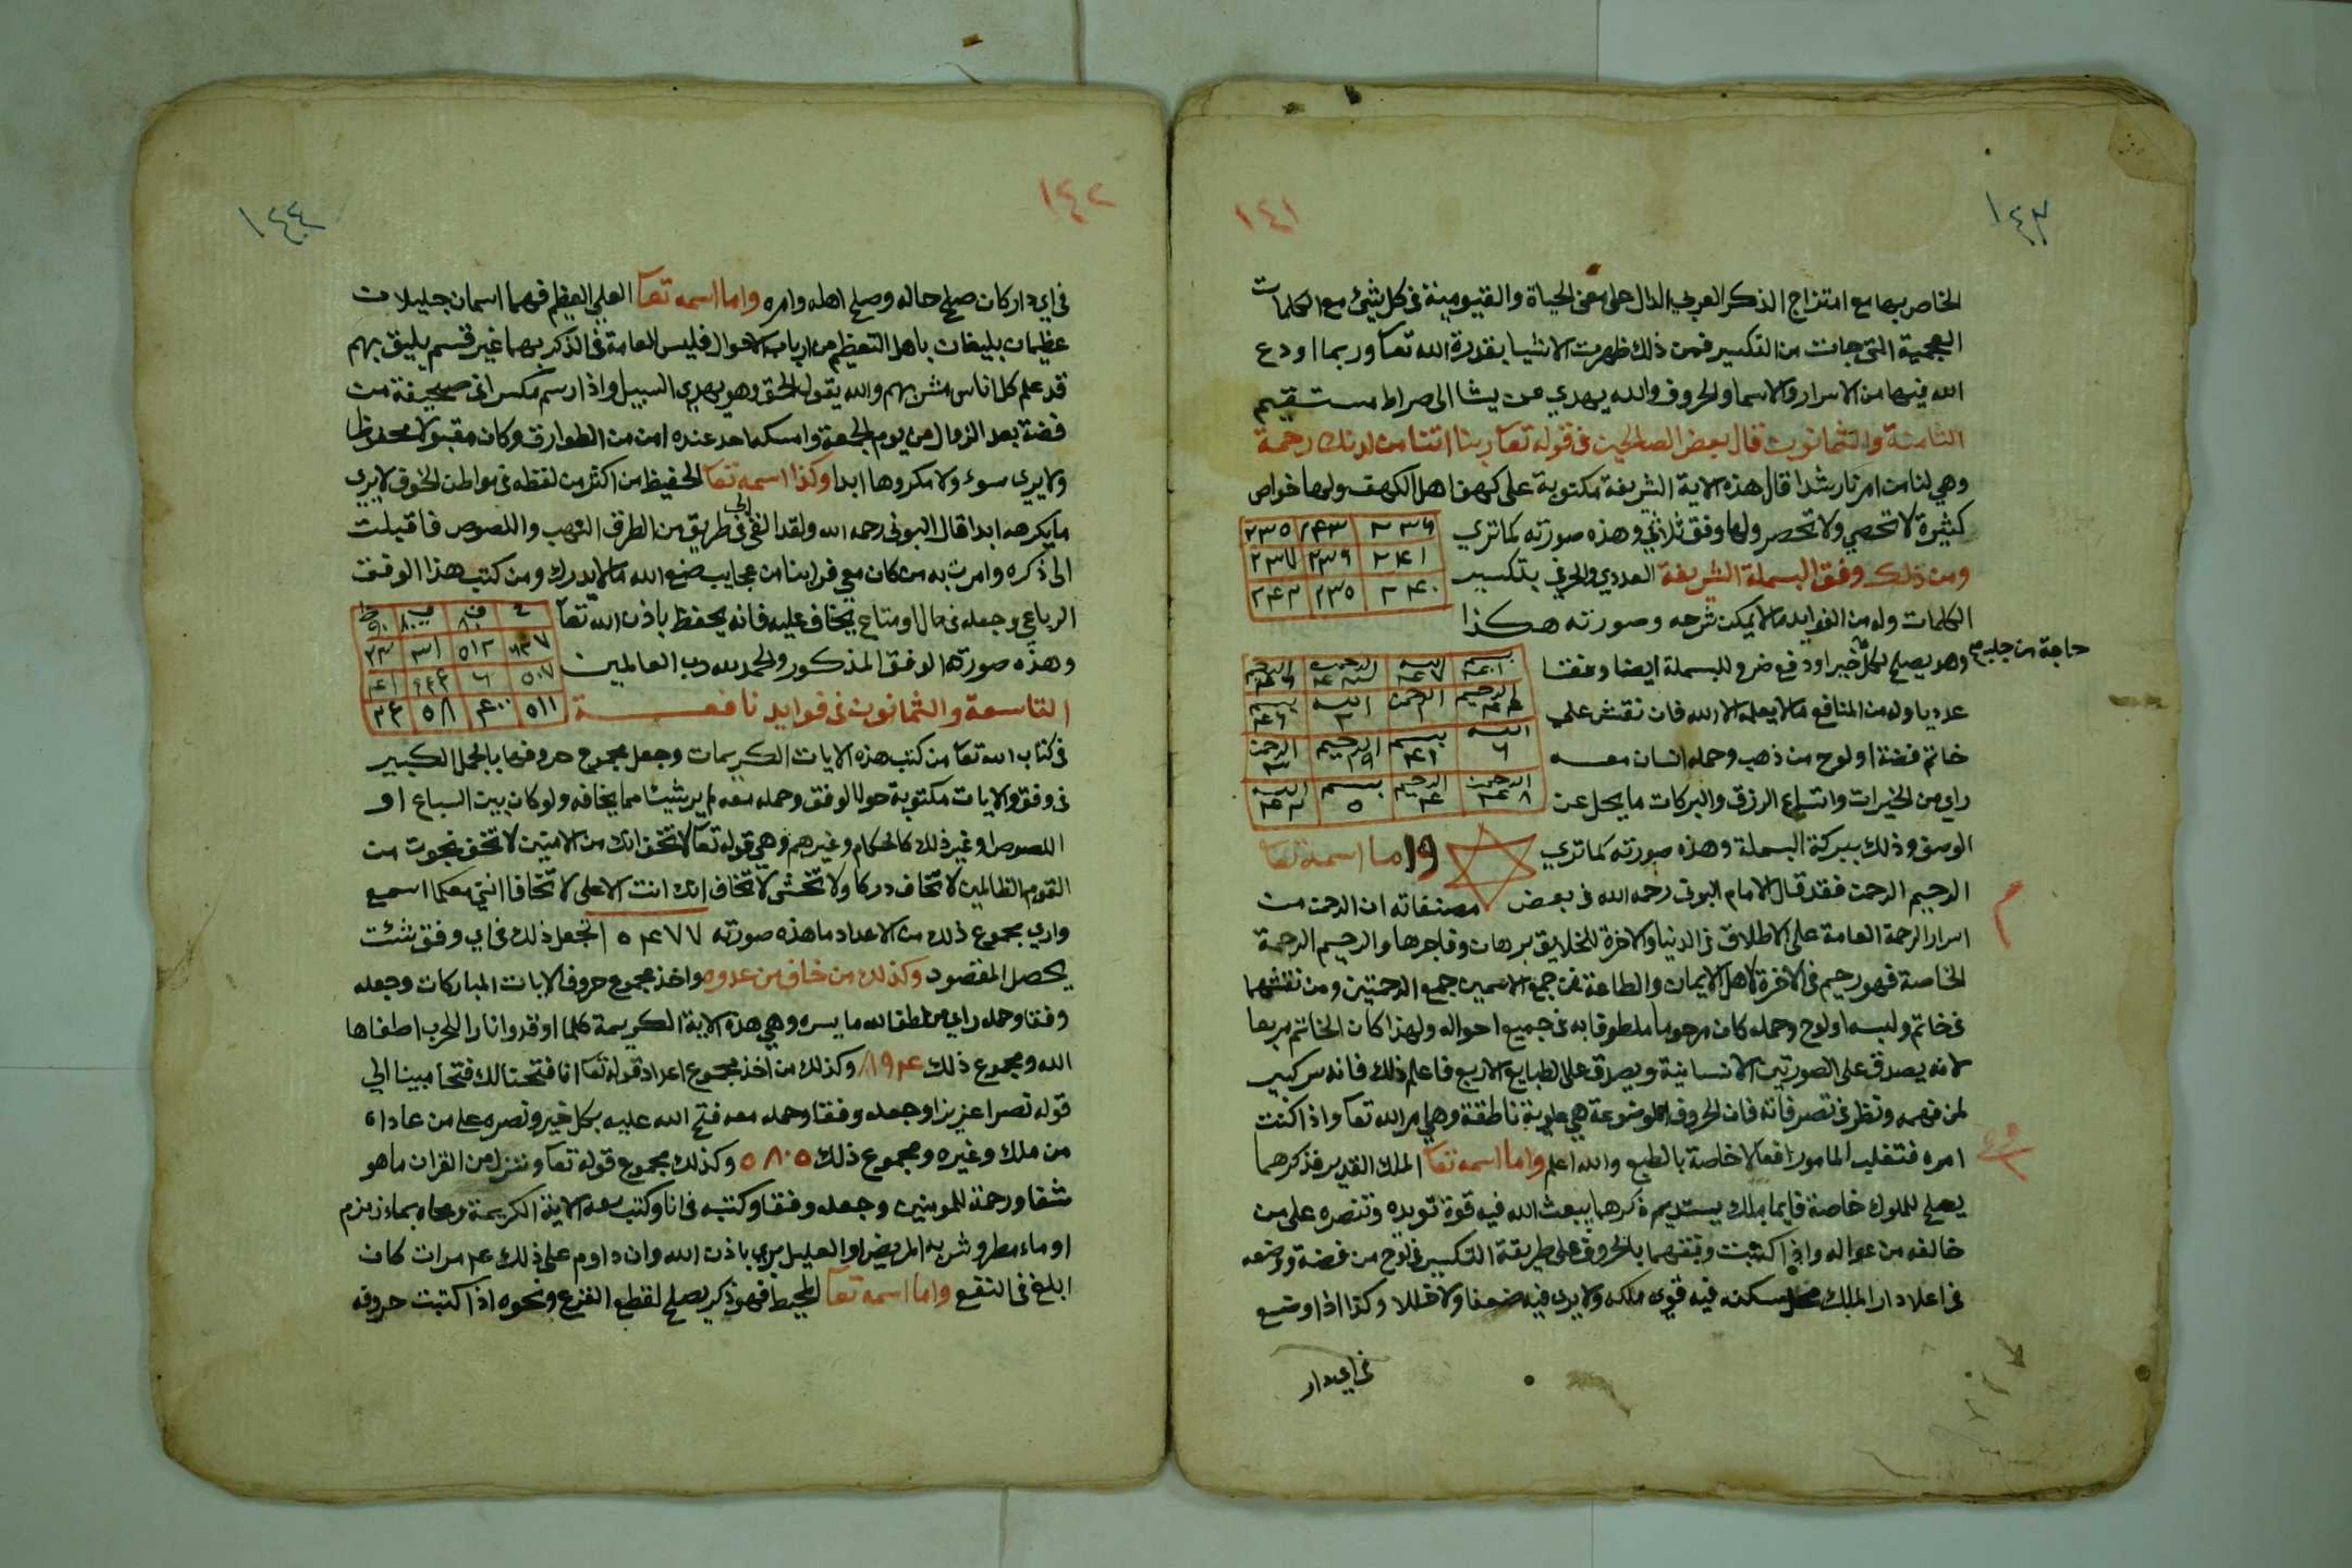 ١٤٣
١٤١
الخاص بها مع امتزاج الذكر العربي الدال على معنى الحياة والقيومية في كل شيئ مع الكلمات
العجمية التي جات من التكسير فمن ذلك ظهرت الاشيا بقدرة الله تعا وربما اودع
الله فيها من الاسرار والاسما والحروف والله يهدي من يشا الى صراط مستقيم
الثامنة والثمانون قال بعض الصالحين في قوله تعا ربنا اتنا من لدنك رحمة
وهي لنا من امرنا رشدا قال هذه الاية الشريفة مكتوبة على كهف اهل الكهف ولها خواص
كثيرة لا تحصي ولا تحصر ولها وفق ثلاثي وهذه صورته كما تري
٢٣٦ ٢٤٣ ٢٣٥
ومن ذلك وفق البسملة الشريفة العددي والحرفي بتكسير
٢٤١ ٢٣٩ ٢٣٧
٢٤٠ ٢٣٥ ٢٤٢
الكلمات وله من الفوايد ما لا يمكن شرحه وصورته هكذا
وهو يصلح لكل خير اودفع ضر وللبسملة ايضا وفقا
حاجة من جلب
عدديا وله من المنافع ما لا يعلمه الا الله فان نقش علي
خاتم فضة او لوح من ذهب وحمله انسان معه
راي من الخيرات واتساع الرزق والبركات ما يجل عن
الوصف وذلك ببركة البسملة وهذه صورته كما تري
واما اسمه تعا
الرحيم الرحمن فقد قال الامام البوني رحمه الله في بعض مصنفاته ان الرحمن من
اسرار الرحمة العامة على الاطلاق في الدنيا والاخرة للخلايق برها وفاجرها والرحيم الرحمة
الخاصة فهو رحيم في الاخرة لاهل الايمان والطاعة فمن جمع الاسمين جمع الرحمتين ومن نقشهما
في خاتم ولبسه اولوح وحمله كان مرحوما ملطوفا به في جميع احواله ولهذا كان الخاتم مربعا
لانه يصدق على الصورتين الانسانية ويصدق على الطبايع الاربع فاعلم ذلك فانه سر كبير
لمن فهمه ونظر في تصرفاته فان الحروف الموضوعة هي علوية ناطقة وهي امر الله تعا واذا كنت
امره فتقلب المامور افعالا خاصة بالطبع والله اعلم واما اسمه تعا الملك القدير فذكرهما
يصلح للملوك خاصة فايما ملك يستديم ذكرهما يبعث الله فيه قوة تويده وتنصره على من
خالفه من عواله واذا كتبت وفقهما بالحروف على طريقة التكسير في لوح من فضة ووضعه
في اعلا دار الملك سكنه فيه قوي ملكه ولا يري فيه ضعفا ولا اختلالا وكذا اذا وضع
في اي دار
١٤٢
١٤٤
في اي دار كان صلح حاله وصلح اهله وامره واما اسمه تعا العلي العظيم فهما اسمان جليلان
عظيمان يليقان باهل التعظيم من ارباب الاحوال فليس للعامة في الذكر بهما غير قسم يليق بهم
قد علم كل اناس مشربهم والله يقول الحق وهو يهدي السبيل واذا رسم مكسرا في صحيفة من
فضة بعد الزوال من يوم الجمعة وامسكها احد عنده امن من الطوارق وكان مقبولا محفوظا
ولا يري سوء ولا مكروها ابدا وكذا اسمه تعا الحفيظ من اكثر من لفظه في مواطن الخوف لا يري
ما يكرهه ابدا قال البوني رحمه الله ولقد التقي في طريق من الطرق النهب واللصوص فاقبلت
الى ذكره وامرت به من كان معي فراينا من عجايب صنع الله ما لا يدرك ومن كتب هذا الوفق
الرباعي وجعله في مال او متاع يخاف عليه فانه يحفظ باذن الله تعا
وهذه صورة الوفق المذكور والحمد لله رب العالمين
التاسعة والثمانون في فوايد نافعة
في كتاب الله تعا من كتب هذه الايات الكريمات وجعل مجموع حروفها بالجمل الكبير
في وفق والايات مكتوبة حول الوفق وحمله معه لم ير شيئا مما يخافه ولو كان بين السباع او
اللصوص او غير ذلك كالحكام وغيرهم وهي قوله تعا لا تخف انك من الامنين لا تخف نجوت من
القوم الظالمين لا تخاف دركا ولا تخشى لا تخاف انك انت الاعلى لا تخافا انني معكما اسمع
واري مجموع ذلك من الاعداد ما هذه صورته ٥٤٧٧ اجعل ذلك في اي وفق شئت
يحصل المقصود وكذلك من خاف من عدوه واخذ مجموع حروف الايات المباركات وجعله
وفقا وحمله راي من لطف الله ما يسره وهي هذه الاية الكريمة كلما اوقدوا نارا للحرب اطفاها
الله ومجموع ذلك ١٩٤ وكذلك من اخذ مجموع اعداد قوله تعا انا فتحنا لك فتحا مبينا الي
قوله نصرا عزيزا وجعله وفقا وحمله معه فتح الله عليه بكل خير ونصره على من عاداه
من ملك وغيره ومجموع ذلك ٥٨٠٥ وكذلك مجموع قوله تعا وننزل من القران ما هو
شفا ورحمة للمومنين وجعله وفقا وكتبه في انا وكتب معه الاية الكريمة ومحاه بماء زمزم
او ماء مطر وشربه المريض او العليل بري باذن الله وان داوم على ذلك ٤ مرات كان
ابلغ في النفع واما اسمه تعا المحيط فهو ذكر يصلح لقطع الفزع ونحوه اذا كتبت حروفه